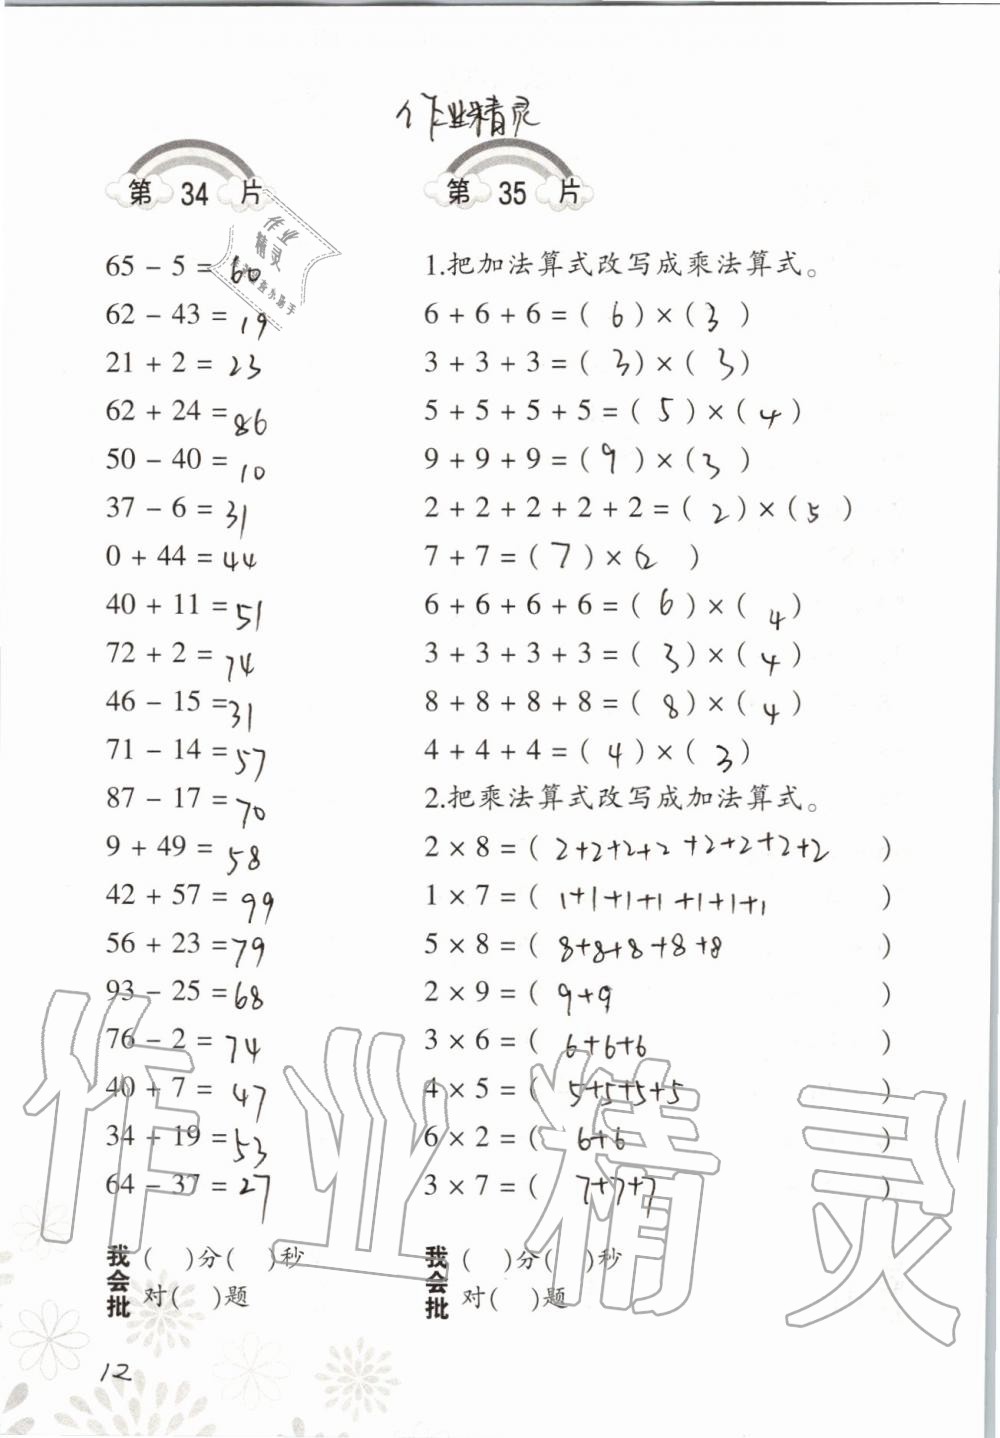 作业精灵
第 34 片
65 - 5 = 60
62 - 43 = 19
21 + 2 = 23
62 + 24 = 86
50 - 40 = 10
37 - 6 = 31
0 + 44 = 44
40 + 11 = 51
72 + 2 = 74
46 - 15 = 31
71 - 14 = 57
87 - 17 = 70
9 + 49 = 58
42 + 57 = 99
56 + 23 = 79
93 - 25 = 68
76 - 2 = 74
40 + 7 = 47
34 + 19 = 53
64 - 37 = 27
我会批
(  )分(  )秒
对(  )题
第 35 片
1.把加法算式改写成乘法算式。
6 + 6 + 6 = ( 6 ) × ( 3 )
3 + 3 + 3 = ( 3 ) × ( 3 )
5 + 5 + 5 + 5 = ( 5 ) × ( 4 )
9 + 9 + 9 = ( 9 ) × ( 3 )
2 + 2 + 2 + 2 + 2 = ( 2 ) × ( 5 )
7 + 7 = ( 7 ) × ( 2 )
6 + 6 + 6 + 6 = ( 6 ) × ( 4 )
3 + 3 + 3 + 3 = ( 3 ) × ( 4 )
8 + 8 + 8 + 8 = ( 8 ) × ( 4 )
4 + 4 + 4 = ( 4 ) × ( 3 )
2.把乘法算式改写成加法算式。
2 × 8 = ( 2+2+2+2+2+2+2+2 )
1 × 7 = ( 1+1+1+1+1+1+1 )
5 × 8 = ( 8+8+8+8+8 )
2 × 9 = ( 9+9 )
3 × 6 = ( 6+6+6 )
4 × 5 = ( 5+5+5+5 )
6 × 2 = ( 6+6 )
3 × 7 = ( 7+7+7 )
我会批
(  )分(  )秒
对(  )题
12
作业
精灵
作业精灵